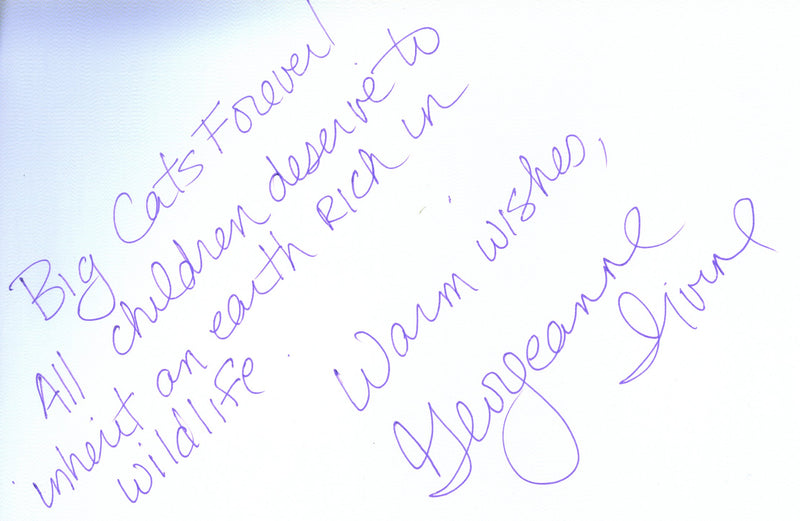 Big Cats Forever!
All children deserve to
inherit an earth rich in
wildlife.
Warm wishes,
Georgeanne
Irvine